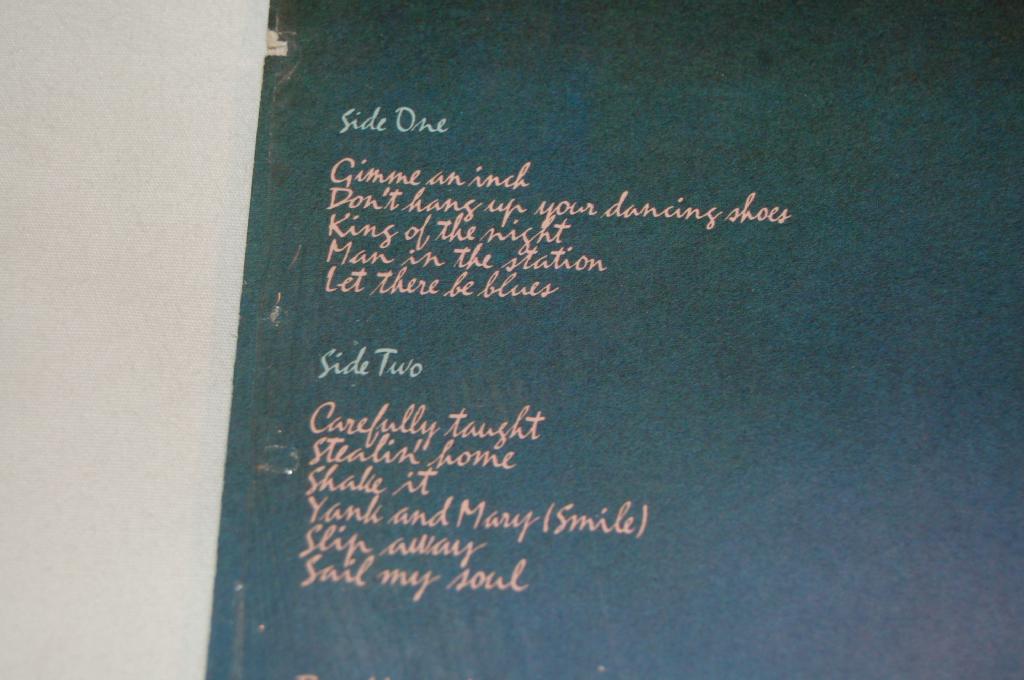 Side One
Gimme an inch
Don't hang up your dancing shoes
King of the night
Man in the station
Let there be blues
Side Two
Carefully taught
Stealin' home
Shake it
Yank and Mary (Smile)
Slip away
Sail my soul